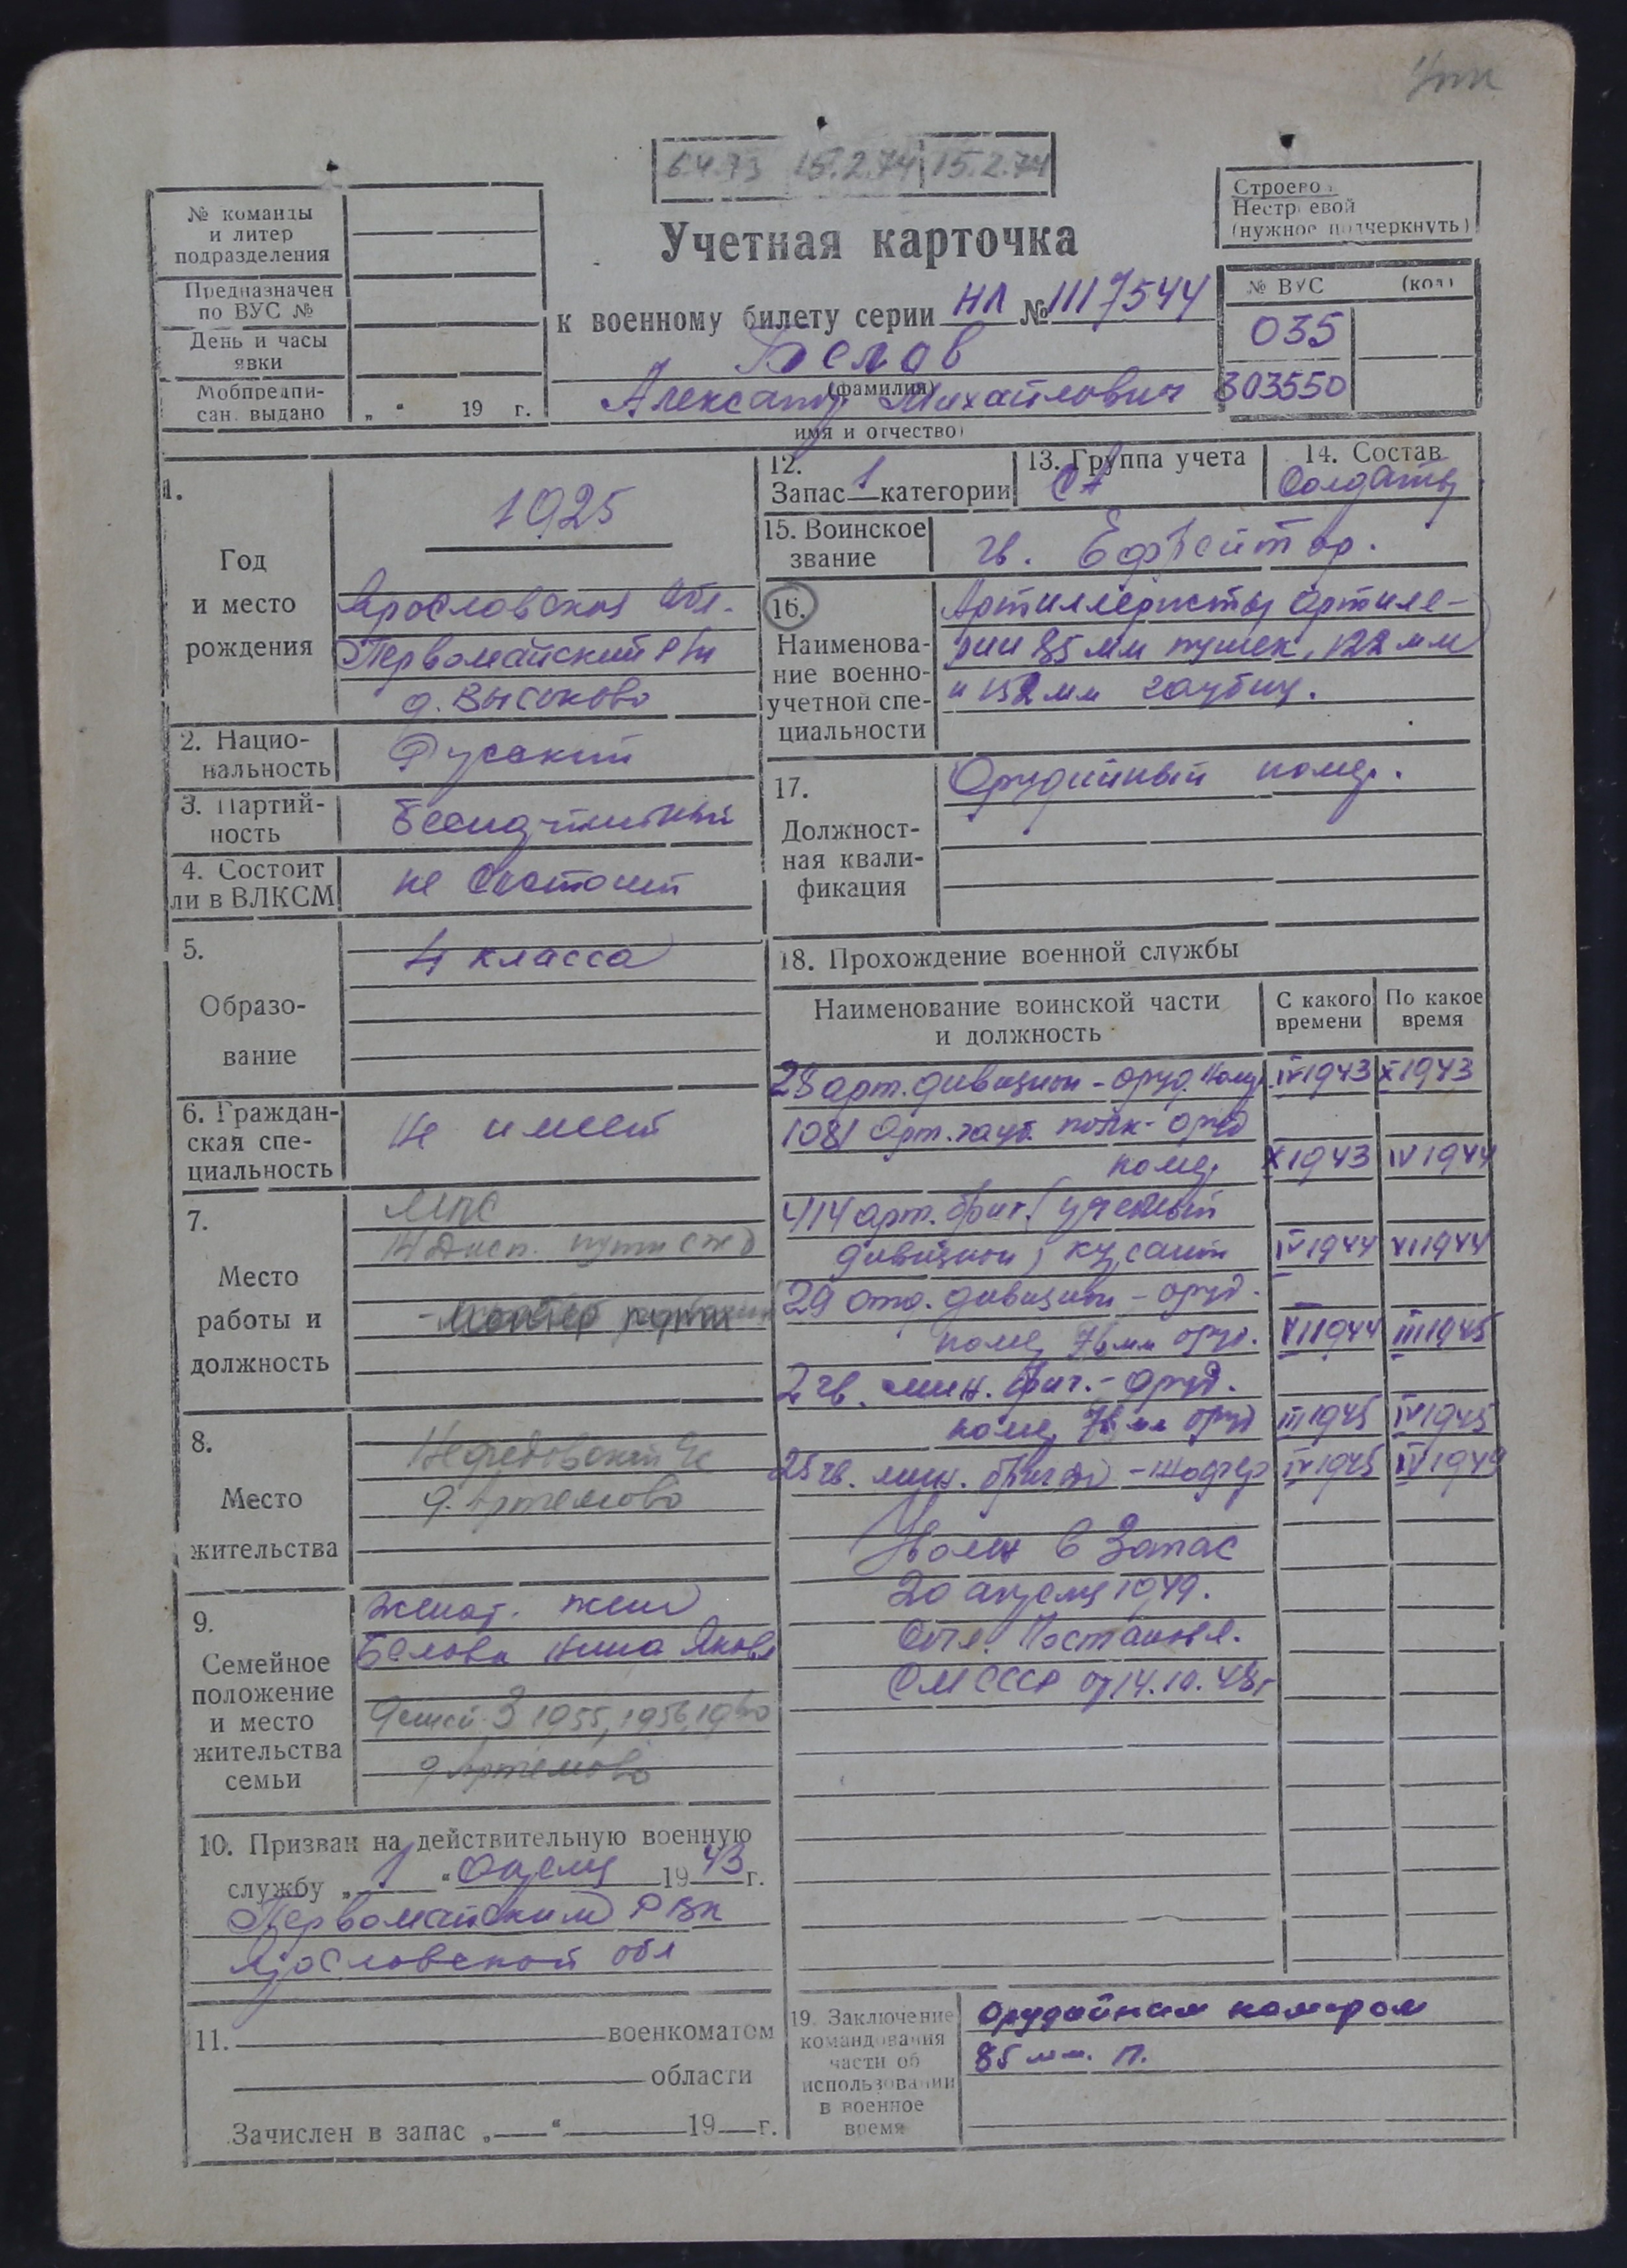 6.4.73 15.2.74 15.2.74
Строевой
Нестроевой
(нужное подчеркнуть)
№ команды
и литер
подразделения
Предназначен
по ВУС №
День и часы
явки
Мобпредпи-
сан. выдано „ “ 19 г.
Учетная карточка
к военному билету серии НЛ № 1117544
Белов
(фамилия)
Александр Михайлович
имя и отчество)
№ ВУС (код)
035
303550
1.
Год
и место
рождения
1925
Ярославская обл.
Первомайский р/н
д. Высоково
2. Нацио-
нальность
Русский
3. Партий-
ность
Беспартийный
4. Состоит
ли в ВЛКСМ
не состоит
5.
Образо-
вание
4 класса
6. Граждан-
ская спе-
циальность
Не имеет
7.
Место
работы и
должность
МПС
8.
Место
жительства
д. Артемово
9.
Семейное
положение
и место
жительства
семьи
женат. жена
Белова Нина Яковл
Детей 3 1955, 1956, 1960
д Артемово
10. Призван на действительную военную
службу „ 1 “ апреля 1943 г.
Первомайским РВК
Ярославской обл
11. военкоматом
области
Зачислен в запас „ “ 19 г.
12.
Запас 1 категории
13. Группа учета
СА
14. Состав
Солдаты
15. Воинское
звание
гв. Ефрейтор.
16.
Наименова-
ние военно-
учетной спе-
циальности
Артиллеристы артиле-
рии 85 мм пушек, 122 мм
и 152 мм гаубиц.
17.
Должност-
ная квали-
фикация
Орудийный номер.
18. Прохождение военной службы
Наименование воинской части
и должность
С какого
времени
По какое
время
28 арт. дивизион - оруд. номер IV 1943 X 1943
1081 Арт. гауб. полк - оруд
номер X 1943 IV 1944
414 арт. бриг. (учебный
дивизион) курсант IV 1944 VI 1944
29 отд. дивизион - оруд.
номер 76 мм оруд. VI 1944 III 1945
2 гв. мин. бриг. - оруд.
номер 76 мм оруд III 1945 IV 1945
25 гв. мин. бригада - шофер IV 1945 IV 1949
Уволен в запас
20 апреля 1949.
Согл. Постановл.
СМ СССР от 14.10.48г
19. Заключение
командования
части об
использовании
в военное
время
орудийным номером
85 мм. п.